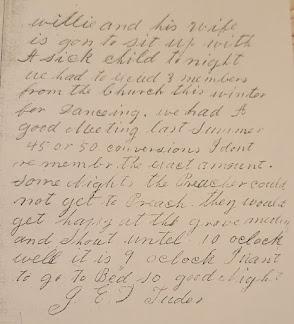 willie and his wife
is gon to sit up with
A sick child tonight
we had to 3 members
from the Church this winter
for Dancing. we had A
good Meeting last Summer
45 or 50 conversions I dont
remember the exact amount.
some Nights the Preacher could
not get to Preach they would
get happy at the grove meeting
and Shout until 10 oclock
well it is 9 oclock I want
to go to Bed so good Night
G E T Tudor